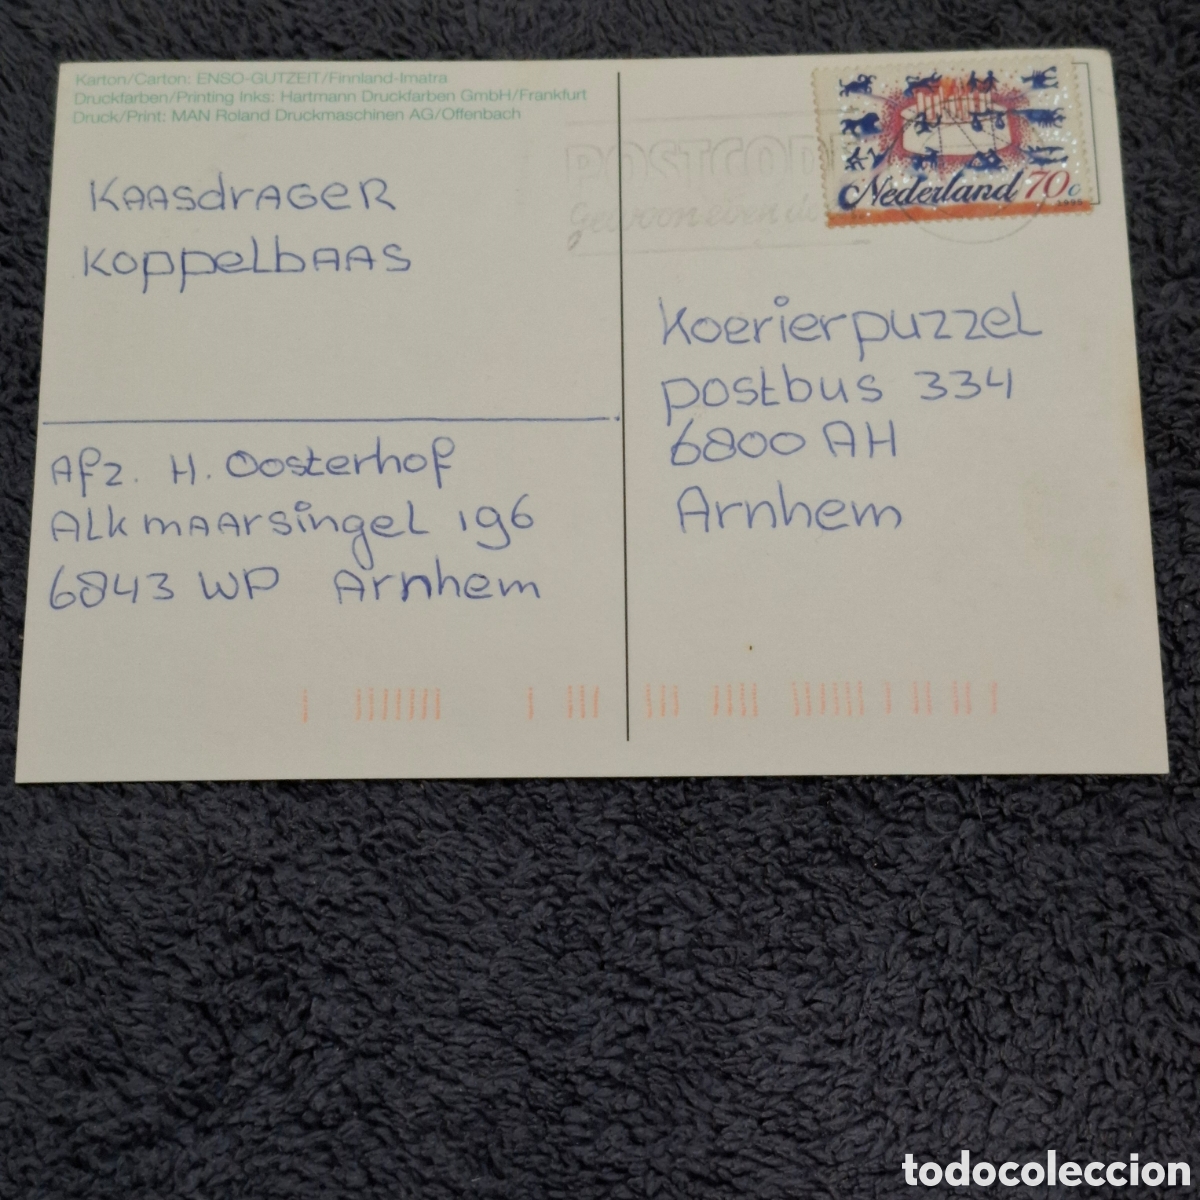 Karton/Carton: ENSO-GUTZEIT/Finnland-Imatra
Druckfarben/Printing Inks: Hartmann Druckfarben GmbH/Frankfurt
Druck/Print: MAN Roland Druckmaschinen AG/Offenbach
KAASdRAGER
KoppelbAAS
Afz. H. Oosterhof
Alkmaarsingel 196
6843 WP Arnhem
POSTCOD
gewoon even
Nederland 70c
1995
Koerierpuzzel
postbus 334
6800 AH
Arnhem
todocoleccion